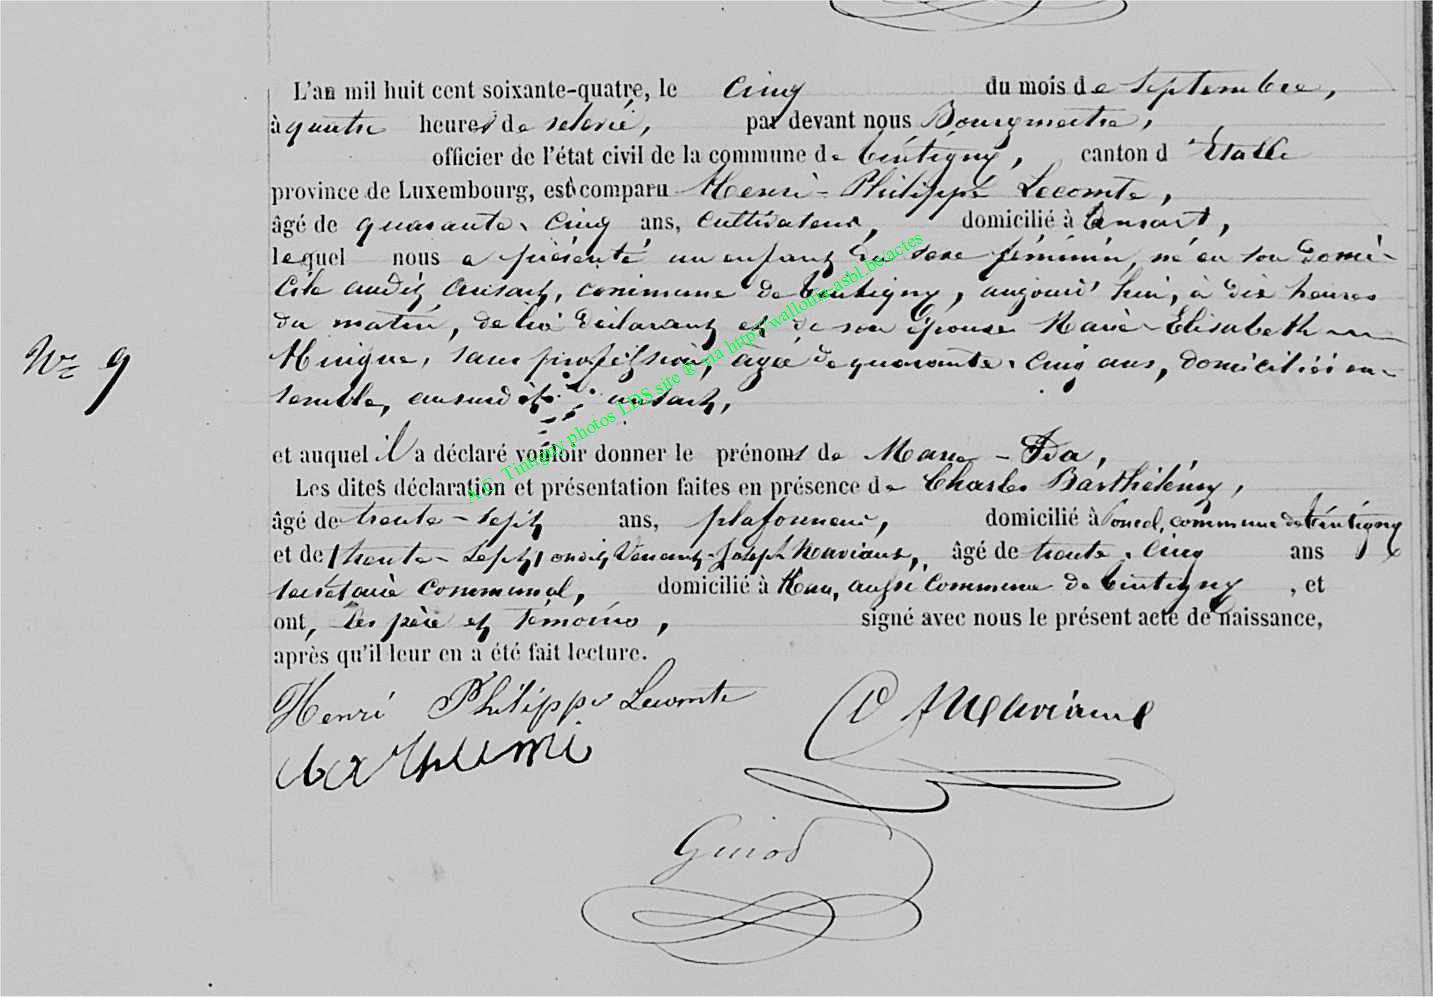 L'an mil huit cent soixante-quatre, le cinq du mois de septembre,
à quatre heures de relevé, par devant nous Bourgmestre,
officier de l'état civil de la commune de Tintigny, canton d'Etalle
province de Luxembourg, est comparu Henri-Philippe Lecomte,
âgé de quarante-cinq ans, cultivateur, domicilié à Ansart,
lequel nous a présenté un enfant du sexe féminin, né en son domi-
cile audit Ansart, commune de Tintigny, aujourd'hui, à dix heures
du matin, de lui déclarant et de son épouse Marie-Elisabeth
sans profession, agée de quarante-cinq ans, domiciliés en-
semble, ausurdit Ansart,
Nr 9
et auquel il a déclaré vouloir donner les prénoms de Marie-Ida,
Les dites déclaration et présentation faites en présence de Charles Barthélémy,
âgé de trente-sept ans, plafonneur, domicilié à Poncel, commune de Tintigny
et de trente-sept ondit Venant-Joseph Maviaux, âgé de trente-cinq ans
secrétaire communal, domicilié à Han, aussi commune de Tintigny, et
ont, les père et témoins, signé avec nous le présent acte de naissance,
après qu'il leur en a été fait lecture.
Henri Philippe Lecomte
A.C. Tintigny photos LDS site ® via http://wallonia-asbl.be/actes